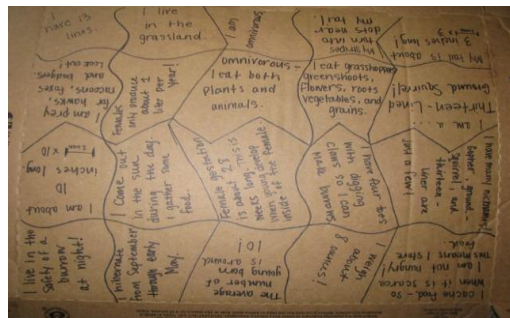 I
have 13
lines.
I live
in the
grassland.
I am
omnivorous
My stripes
turn into
dots near
my tail!
My tail is about
3 inches long!
I am prey
for hawks,
raccoons, foxes,
and badgers.
Look out!
Females
only produce
about 1
liter per
year!
omnivorous-
I eat both
plants and
animals.
I eat grasshoppers,
greenshoots,
flowers, roots
vegetables, and
grains.
I am a....
Thirteen-Lined
Ground Squirrel!
I am about
10
inches long
I come out
in the sun
during the day.
I gather some
food.
Female gestation
is about 28
This is
when young develop
inside of the female
I have four toes
with digging
claws so I can
make burrows
I have many nicknames!
Gopher, ground
squirrel, and
thirteen-
liner are
just a few!
I live in the
safety of a
burrow
at night!
I hibernate
from September
through early
May.
The average
number of
young born
is around
10!
I weigh
about
8 ounces!
I cache food - so
when it is scarce
I am not hungry!
This means I store
food.